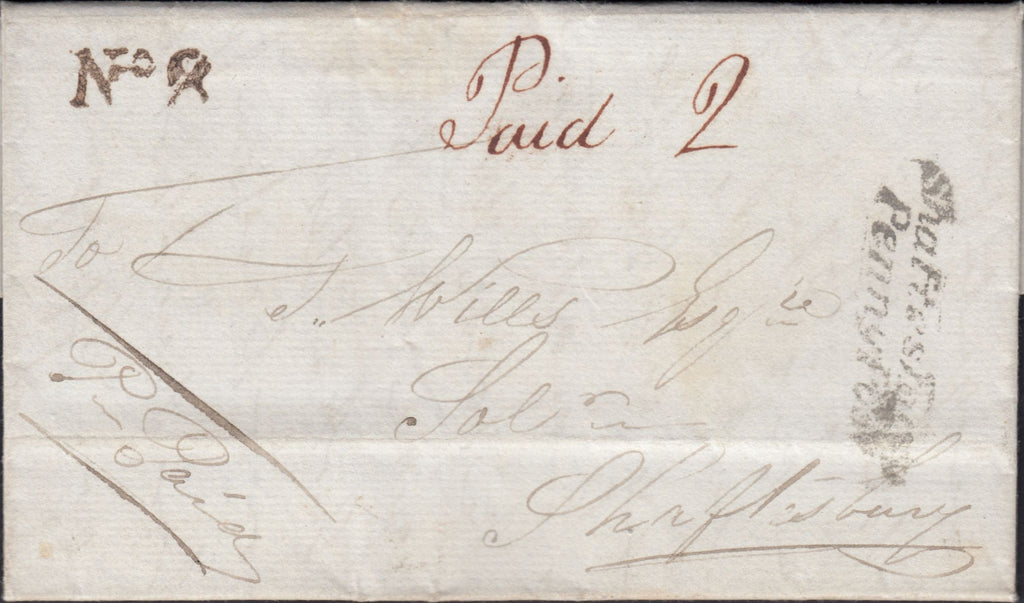 No 2
Paid 2
To
T. Wills Esqre
Solr
Shaftesbury
Po Paid
Shaftesbury
Penny Post